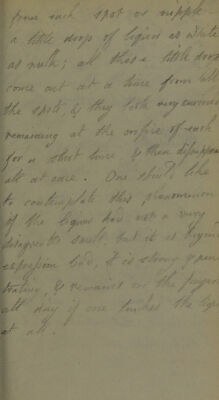 from each spot or nipple
a little drop of liquid as white
as milk; all these little drops
come out at a time from all
the spots, & they look very curious
remaining at the orifice of each
for a short time, & then disappear
all at once. One should like
to contemplate this phenomenon
if the liquor had not a very
disagreeable smell, but it is beyond
expression bad, it is strong & pene
trating, & remains on the fingers
all day if one touches the liquor
at all.